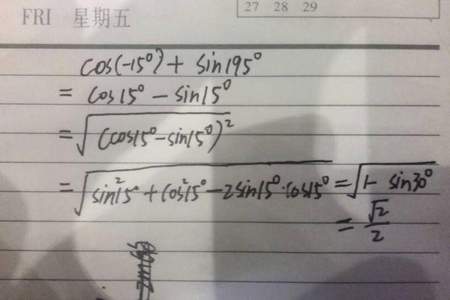 27 28 29
FRI 星期五
cos(-15°) + sin195°
= cos15° - sin15°
= √(cos15° - sin15°)²
= √sin²15° + cos²15° - 2sin15°·cos15° = √1 - sin30°
= √2/2